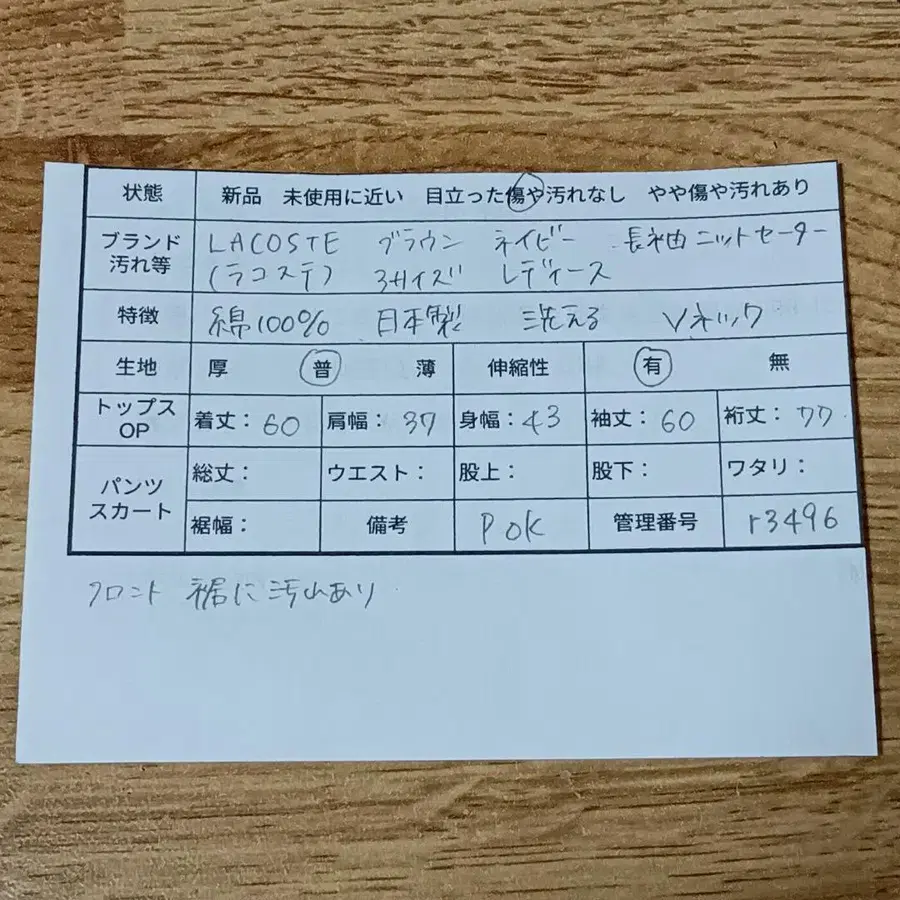 状態 新品 未使用に近い 目立った傷や汚れなし やや傷や汚れあり
ブランド 汚れ等 LACOSTE ブラウン ネイビー 長袖ニットセーター
(ラコステ) 3サイズ レディース
特徴 綿100% 日本製 洗える Vネック
生地 厚 普 薄 伸縮性 有 無
トップス OP 着丈: 60 肩幅: 37 身幅: 43 袖丈: 60 裄丈: 77
パンツ スカート 総丈: ウエスト: 股上: 股下: ワタリ:
裾幅: 備考 POK 管理番号 r3496
フロント 裾に汚れあり